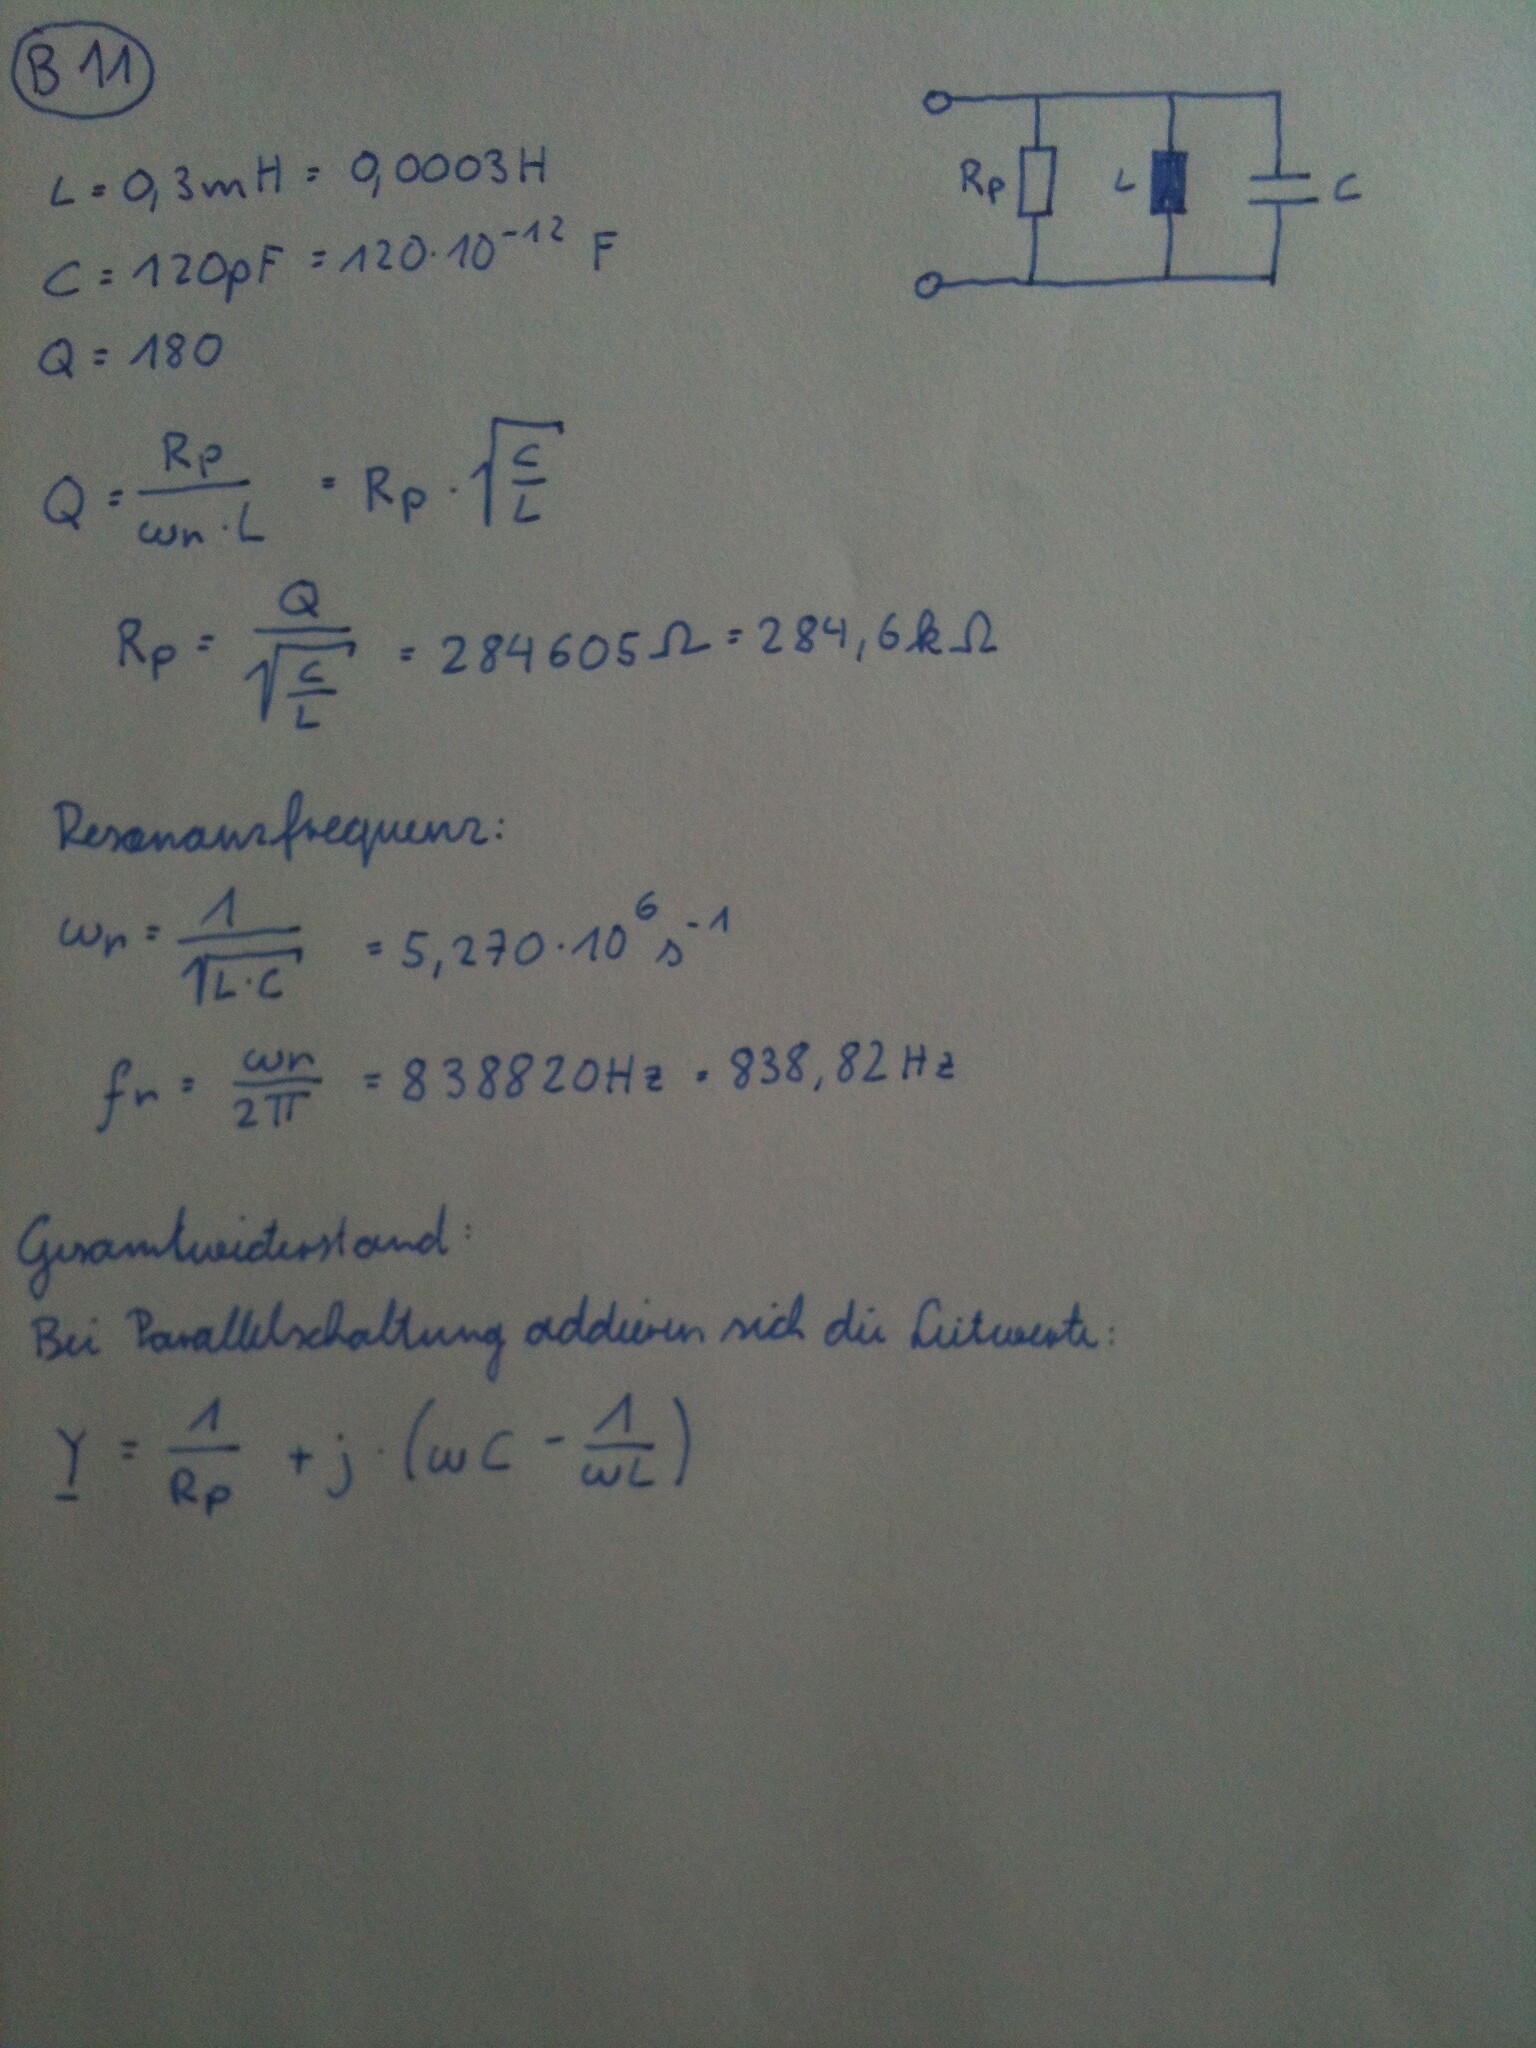 B 11
Rp L C
L = 0,3mH = 0,0003H
C = 120pF = 120·10⁻¹² F
Q = 180
Q = Rp / (ωr · L) = Rp · √(C/L)
Rp = Q / √(C/L) = 284605Ω = 284,6kΩ
Resonanzfrequenz:
ωr = 1 / √(L·C) = 5,270·10⁶ s⁻¹
fr = ωr / 2π = 838820Hz = 838,82Hz
Gesamtwiderstand:
Bei Parallelschaltung addieren sich die Leitwerte:
Y = 1/Rp + j · (ωC - 1/ωL)